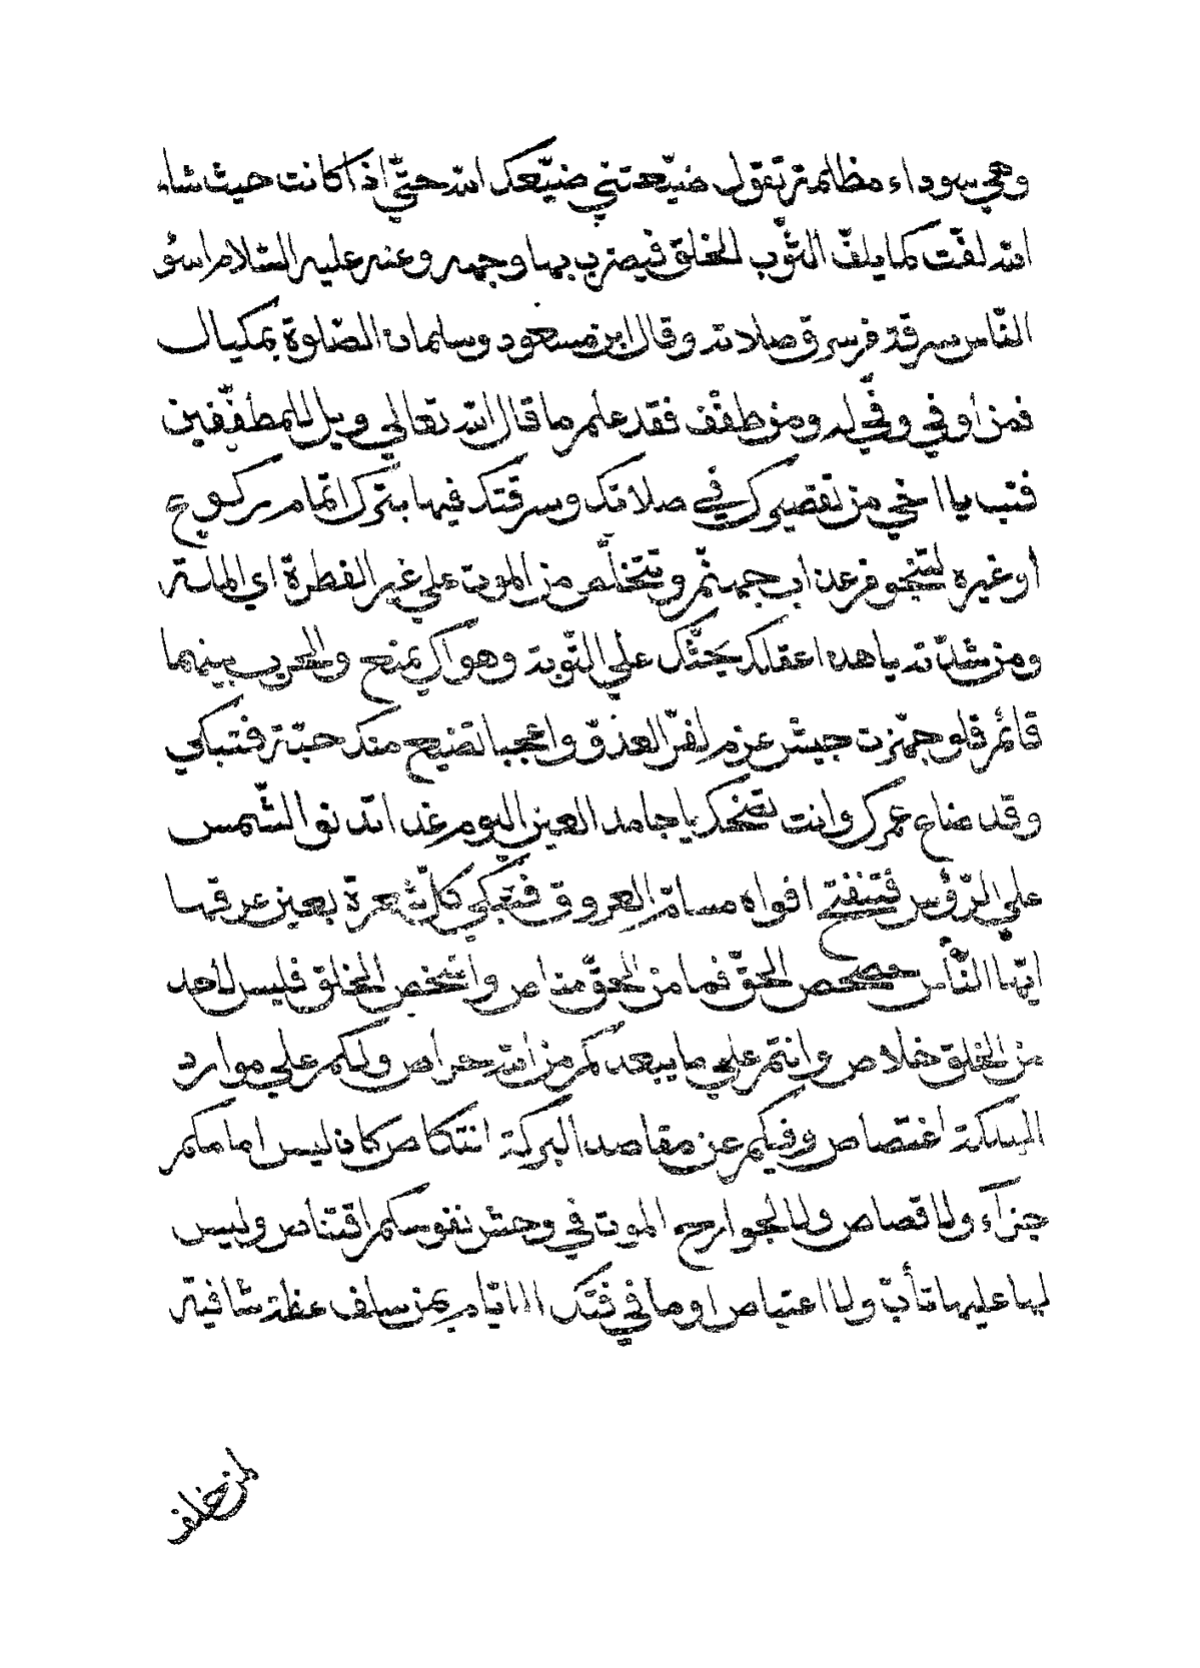 وهي سوداء مظلمة تقول ضيّعتني ضيّعك الله حتّي اذا كانت حيث شاء
الله لفّت كما يلفّ الثّوب الخلق فيضرب بها وجهه وعنه عليه السّلام اسؤ
النّاس سرقة من سرق صلاته وقال ابن مسعود وسلمان الصّلوة بمكيال
فمن اوفي وفّي له ومن طفّف فقد علم ما قال الله تعالي ويل للمطفّفين
فتب يا اخي من تقصيرك في صلاتك وسرقتك فيها بترك اتمام ركوع
أو غيره لتنجو من عذاب جهنّم وتتخلّص من الموت علي غير الفطرة اي الملة
ومن شدّته يا هذا عقلك يحثّك علي التّوبة وهواك يمنع والحرب بينهما
قائم فلو جهّزت جيش عزم لفرّ العدوّ واعجبا تضيع منك حبّة فتبكي
وقد ضاع عمرك وانت تضحك يا جامد العين اليوم غدا تدنو الشّمس
علي الرّؤس فتنفتح افواه مسامّ العروق فتبكي كلّ شعرة بعين عرقها
ايّها النّاس حصحص الحقّ فما من الحقّ مناص واشخص الخلق فليس لاحد
من الخلق خلاص وانتم علي ما يبعدكم من الله حراص ولكم علي موارد
الهلكة اغتصاص وفيكم عن مقاصد البركة انتكاص كان ليس امامكم
جزآء ولا قصاص ولا لجوارح الموت في وحش نفوسكم اقتناص وليس
لها عليها تأبّ ولا اعتياص او ما في فتك الايّام بمن سلف عظة شافية
لمن خلف